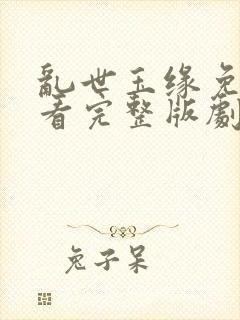 亂世玉缘免
看完整版劇
兔子呆